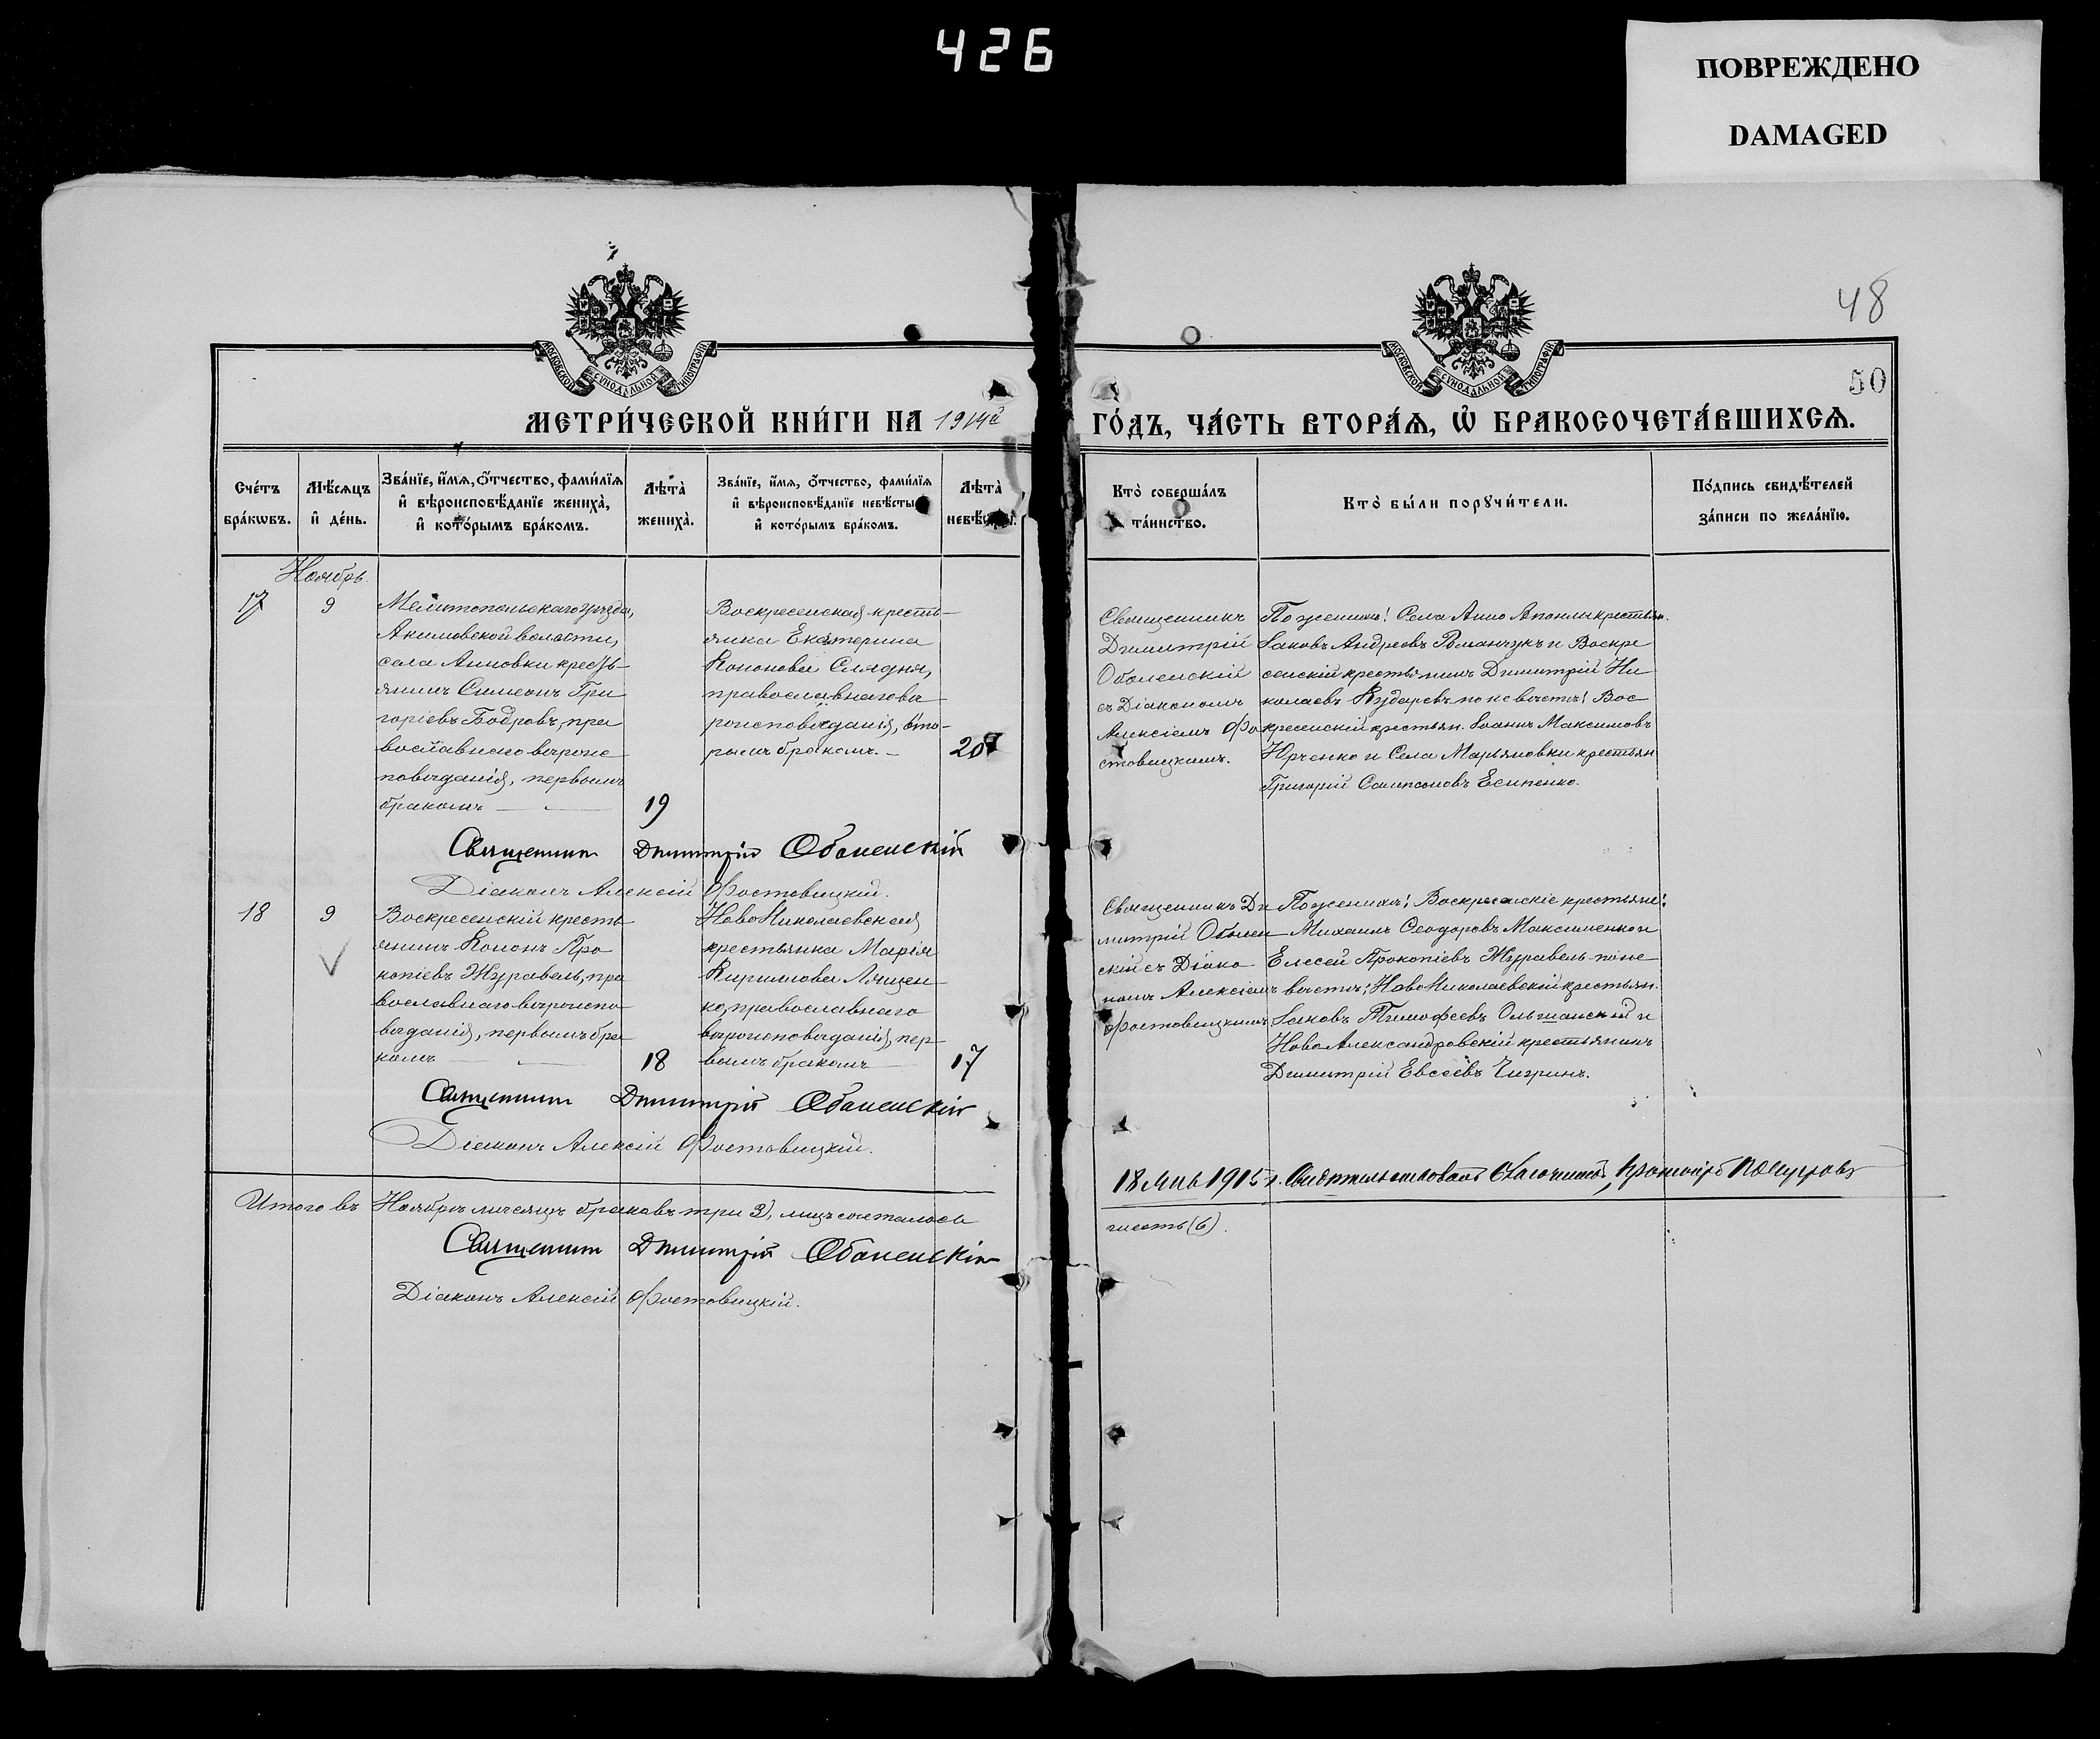 426
ПОВРЕЖДЕНО
DAMAGED
48
50
МОСКОВСКОЙ СѴНОДАЛЬНОЙ ТИПОГРАФІИ
МОСКОВСКОЙ СѴНОДАЛЬНОЙ ТИПОГРАФІИ
МЕТРИ́ЧЕСКОЙ КНИ́ГИ НА 1914й ГО́ДЪ, ЧА́СТЬ ВТОРА́Ѧ, Ѽ БРАКОСОЧЕТА́ВШИХСѦ.
Сче́тъ бра́кѡвъ.
Мѣ́сяцъ и҆ де́нь.
Зва́нїе, и҆́мя, ѻ҆́тчество, фами́лїя
и҆ вѣроисповѣ́данїе жениха̀,
и҆ кото́рымъ бра́комъ.
Лѣта̀ жениха̀.
Зва́нїе, и҆́мя, ѻ҆́тчество, фами́лїя
и҆ вѣроисповѣ́данїе невѣ́сты
и҆ кото́рымъ бра́комъ.
Лѣта̀ невѣ́сты.
Кто̀ соверша́лъ та́инство.
Кто̀ бы́ли порꙋчи́тели.
По́дпись свидѣ́телей
за́писи по жела́нїю.
Ноябрь.
17
9
Мелитопольскаго уѣзда,
Акимовской волости,
села Анновки кресть-
янинъ Симеонъ Гри
горіевъ Бодровъ, пра
вославнаго вѣроис
повѣданія, первымъ
бракомъ
19
Воскресенская кресть-
янка Екатерина
Кононова Слядня,
православнаго вѣ
роисповѣданія, вто-
рымъ бракомъ.
20
Священникъ
Димитрій
Оболенскій
съ Діакономъ
Алексіемъ Фо
стовицкимъ.
По женихѣ: Села Анно Апонли крестьян.
Іаковъ Андреевъ Романчукъ и Воскре
сенскій крестьянинъ Димитрій Ни
колаевъ Кударевъ по невѣстѣ: Вос
кресенскій крестьян. Іоаннъ Максимовъ
Юрченко и Села Марьяновки крестьян
Григорій Сампсоновъ Есипенко.
Священникъ Димитрій Оболенскій
Діаконъ Алексій Фостовицкій.
18
9
Воскресенскій кресть
янинъ Кононъ Про
копіевъ Журавель, пра
вославнаго вѣроиспо
вѣданія, первымъ бра
комъ
18
НовоНиколаевская
крестьянка Марія
Кириллова Лящен
ко, православнаго
вѣроисповѣданія, пер
вымъ бракомъ
17
Священникъ Ди
митрій Оболен
скій съ Діако
номъ Алексіемъ
Фостовицкимъ
По женихѣ: Воскресенскіе крестьяне:
Михаилъ Ѳеодоровъ Максименко и
Елисей Прокопіевъ Журавель по не
вѣстѣ: НовоНиколаевскій крестьян.
Іаковъ Тимофеевъ Ольшанскій и
НовоАлександровскій крестьянинъ
Димитрій Евсеевъ Чигринъ.
Священникъ Димитрій Оболенскій
Діаконъ Алексій Фостовицкій.
18 1915 г. Свидѣтельствовалъ Благочинный, Протоіерей
Итого въ Ноябрѣ мѣсяцѣ браковъ три 3), лицъ сочеталось
шесть (6).
Священникъ Димитрій Оболенскій
Діаконъ Алексій Фостовицкій.